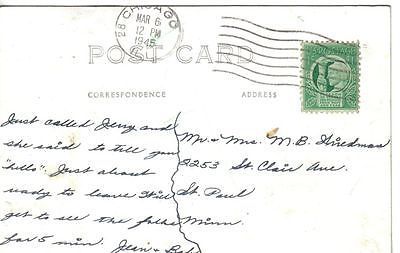 CHICAGO
28
MAR 6
12 PM
1945
POST CARD
CORRESPONDENCE
ADDRESS
Just called Jerry and
she said to tell you
"hello". Just about
ready to leave. Will
get to see the folks
for 5 min. Jean &
Mr. & Mrs. M. B. Friedman
2253 St. Clair Ave.
St. Paul
Minn.